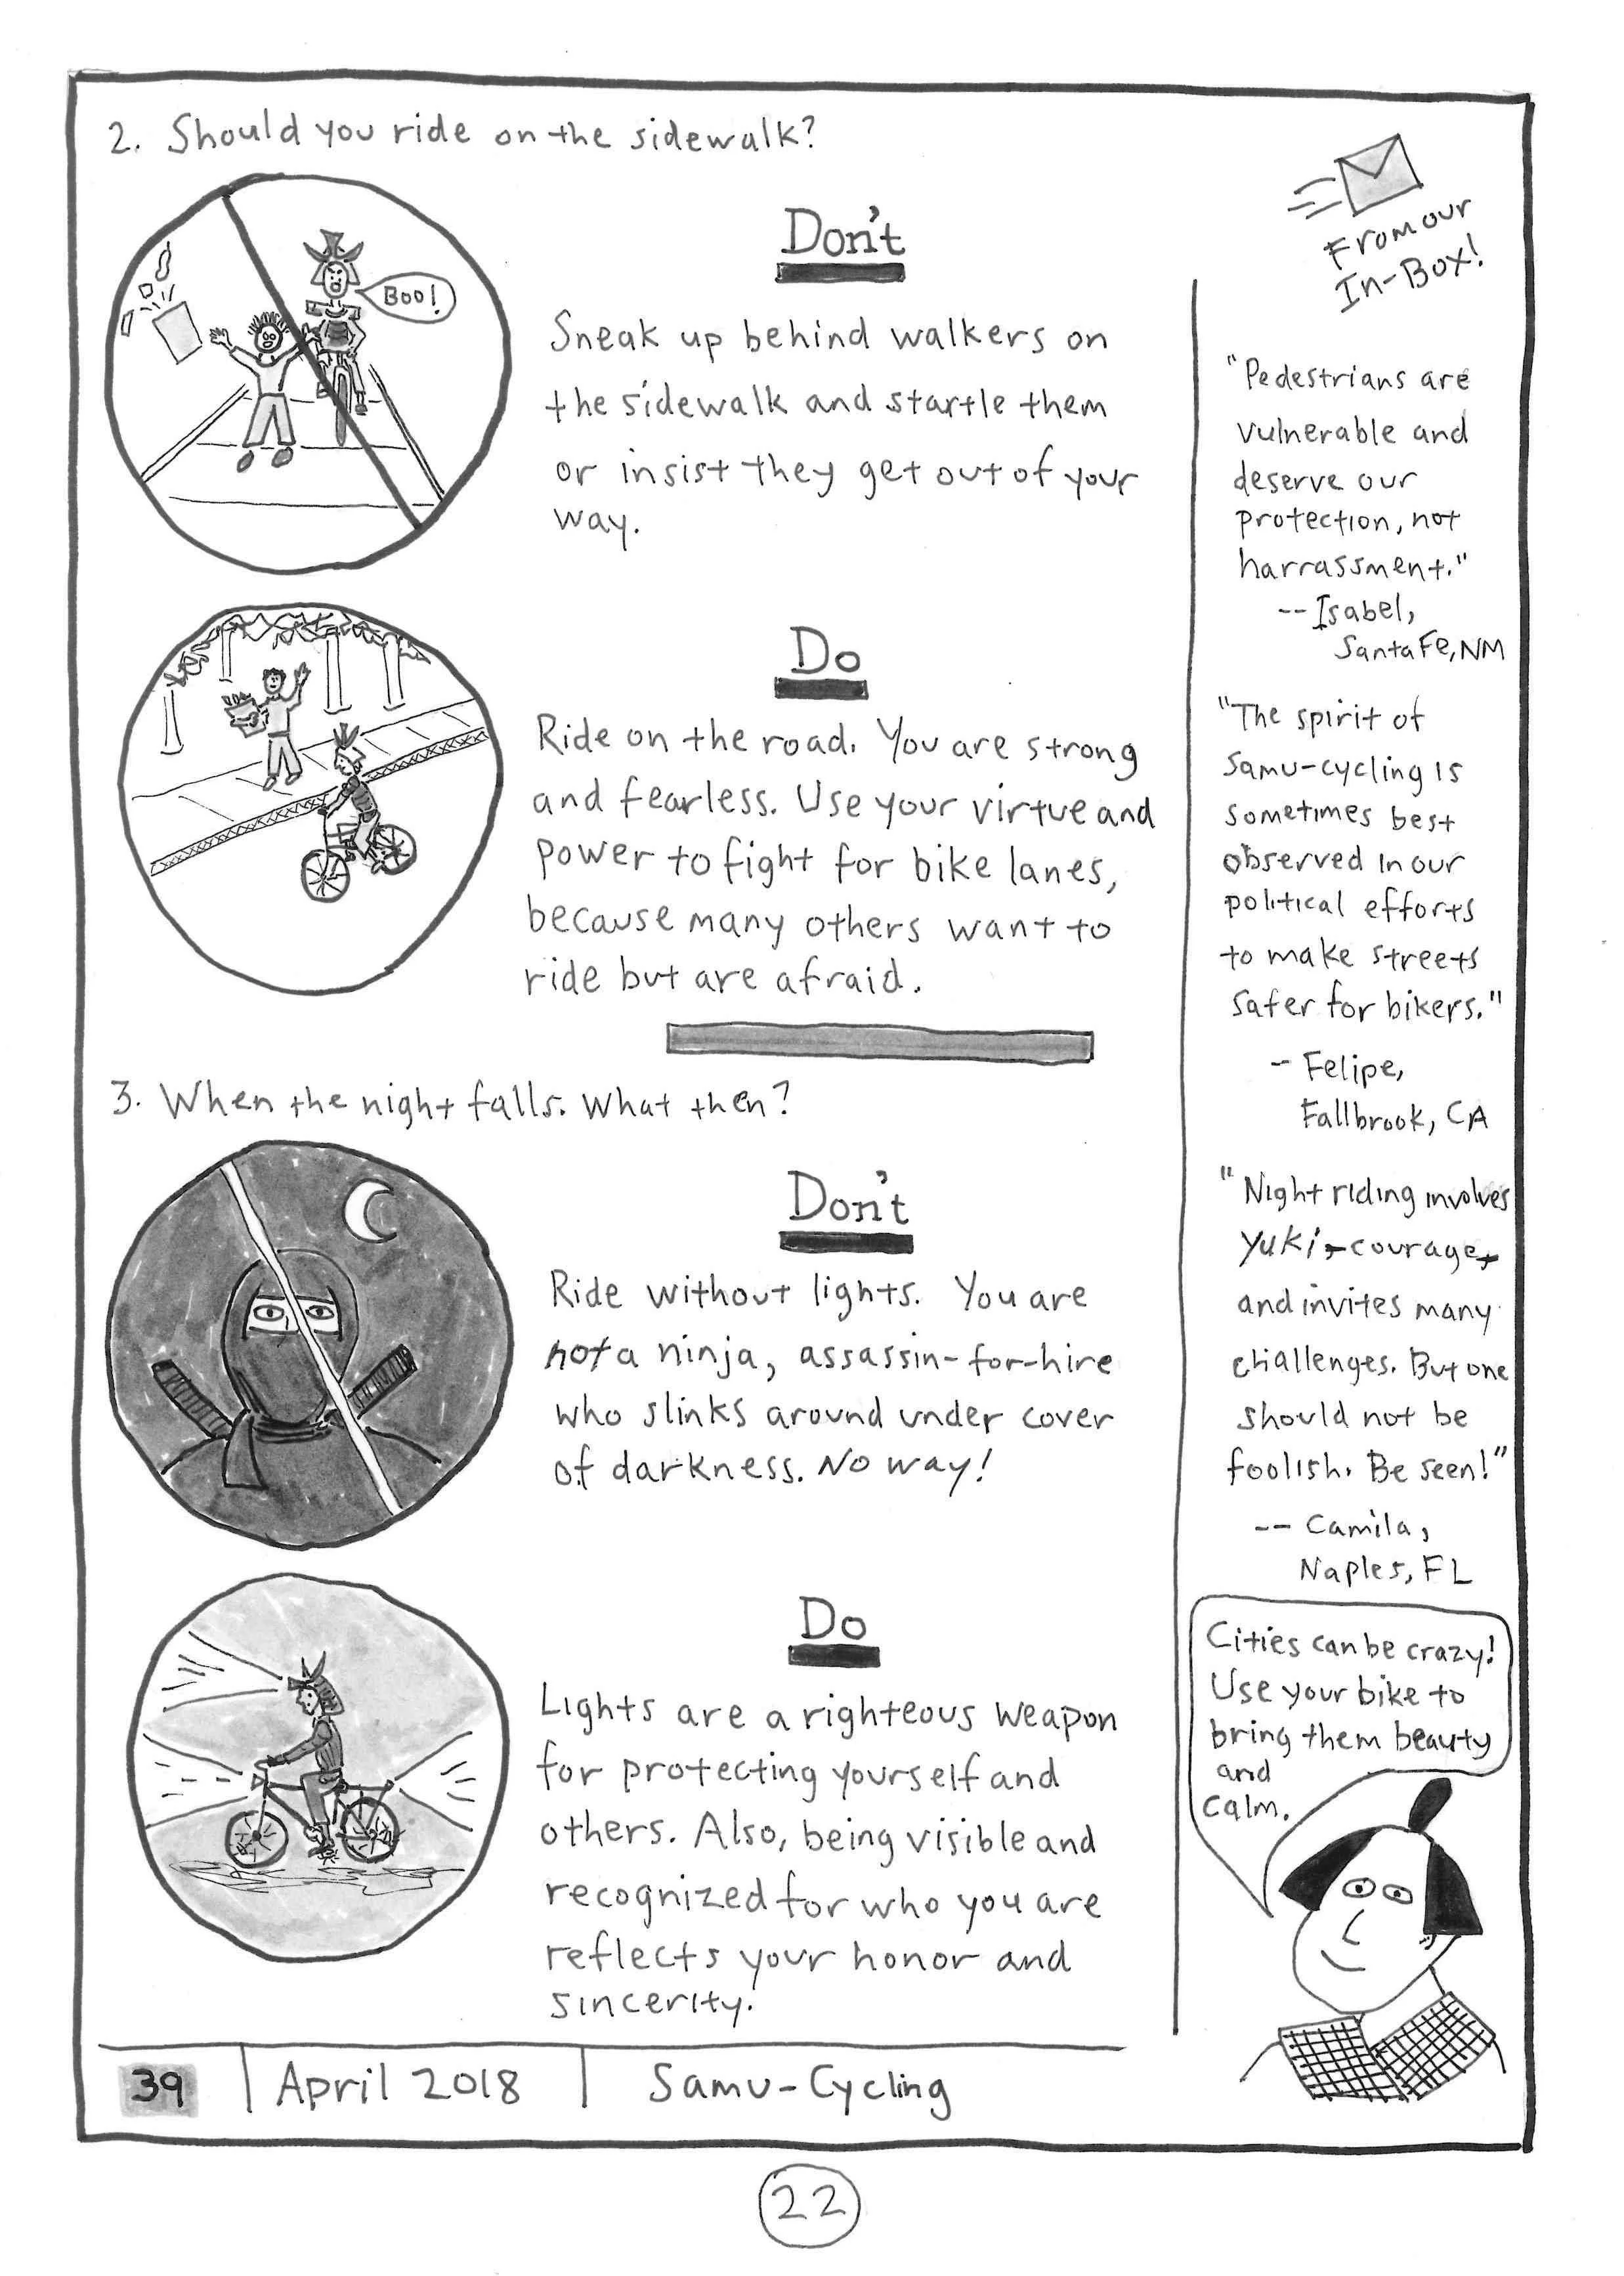 2. Should you ride on the sidewalk?
BOO!
Don't
Sneak up behind walkers on
the sidewalk and startle them
or insist they get out of your
way.
Do
Ride on the road. You are strong
and fearless. Use your virtue and
power to fight for bike lanes,
because many others want to
ride but are afraid.
3. When the night falls. What then?
Don't
Ride without lights. You are
not a ninja, assassin-for-hire
who slinks around under cover
of darkness. No way!
Do
Lights are a righteous weapon
for protecting yourself and
others. Also, being visible and
recognized for who you are
reflects your honor and
sincerity.
From our
In-Box!
"Pedestrians are
vulnerable and
deserve our
protection, not
harrassment."
-- Isabel,
Santa Fe, NM
"The spirit of
Samu-cycling is
sometimes best
observed in our
political efforts
to make streets
safer for bikers."
- Felipe,
Fallbrook, CA
"Night riding involves
Yuki, courage,
and invites many
challenges. But one
should not be
foolish. Be seen!"
-- Camila,
Naples, FL
Cities can be crazy!
Use your bike to
bring them beauty
and
calm.
39 | April 2018 | Samu-Cycling
22